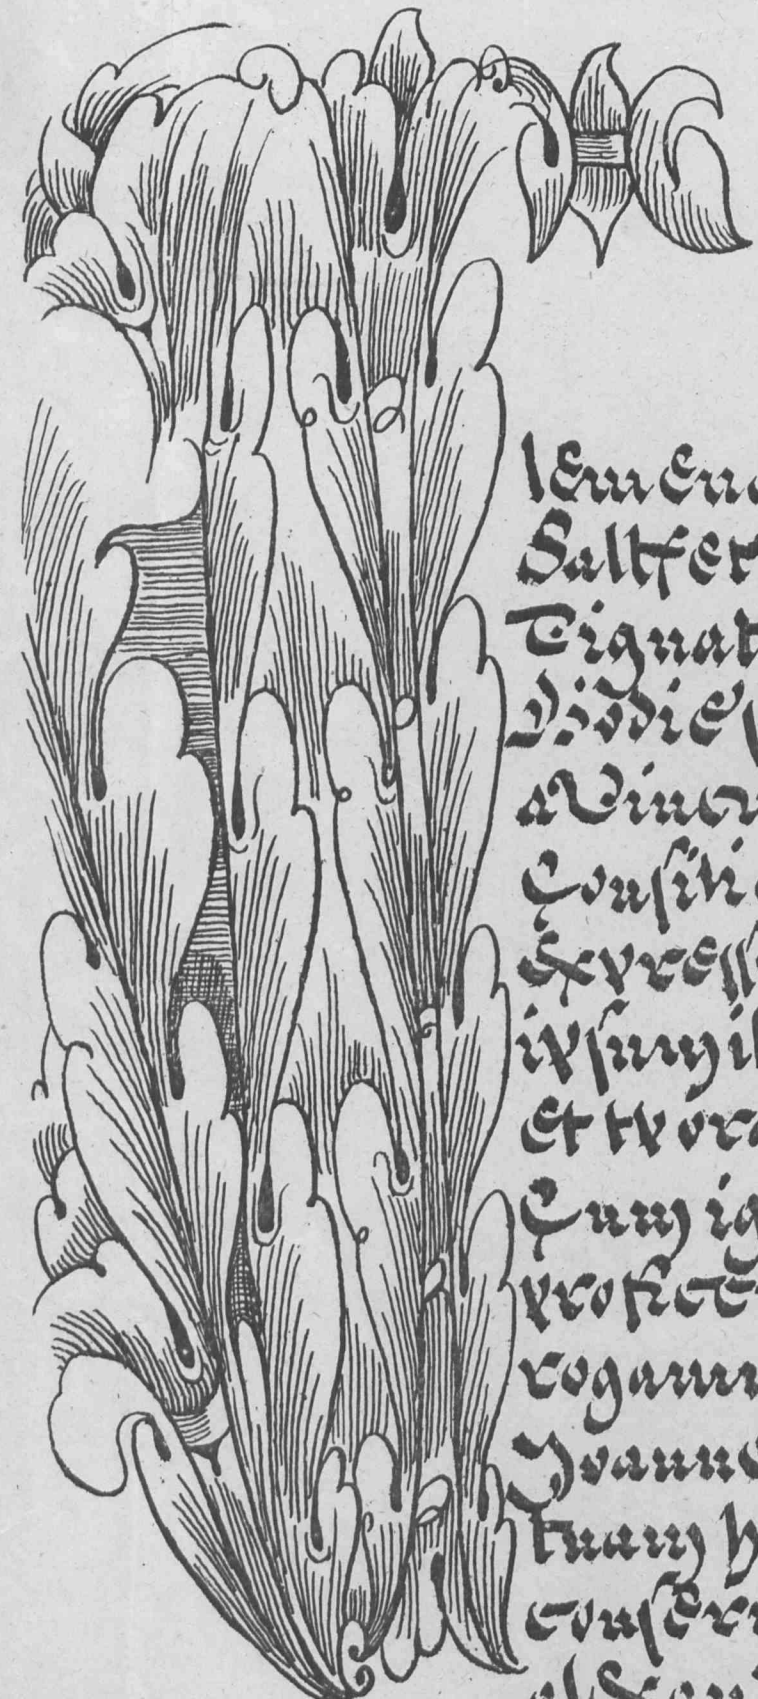 lemen
Saltfet
Dignat
Hodie
a Vincu
Consili
express
ipsum il
et tp ora
Cum ig
profice
rogamu
Joanne
tuam h
conser